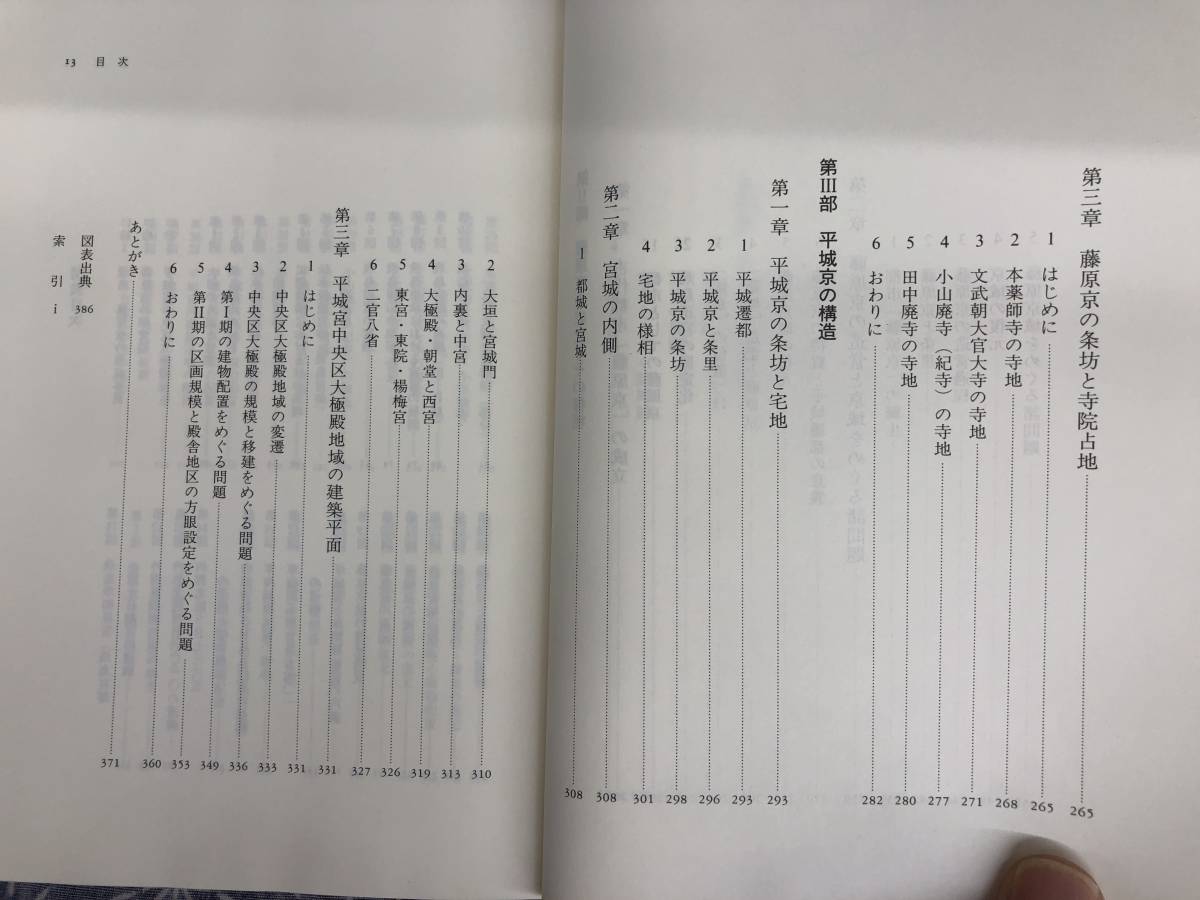 第三章 藤原京の条坊と寺院占地 265
1 はじめに 265
2 本薬師寺の寺地 268
3 文武朝大官大寺の寺地 271
4 小山廃寺（紀寺）の寺地 277
5 田中廃寺の寺地 280
6 おわりに 282
第III部 平城京の構造
第一章 平城京の条坊と宅地 293
1 平城遷都 293
2 平城京と条里 296
3 平城京の条坊 298
4 宅地の様相 301
第二章 宮城の内側 308
1 都城と宮城 308
13 目次
2 大垣と宮城門 310
3 内裏と中宮 313
4 大極殿・朝堂と西宮 319
5 東宮・東院・楊梅宮 326
6 二官八省 327
第三章 平城宮中央区大極殿地域の建築平面 331
1 はじめに 331
2 中央区大極殿地域の変遷 333
3 中央区大極殿の規模と移建をめぐる問題 336
4 第I期の建物配置をめぐる問題 349
5 第II期の区画規模と殿舎地区の方眼設定をめぐる問題 353
6 おわりに 360
あとがき 371
図表出典 386
索引 i